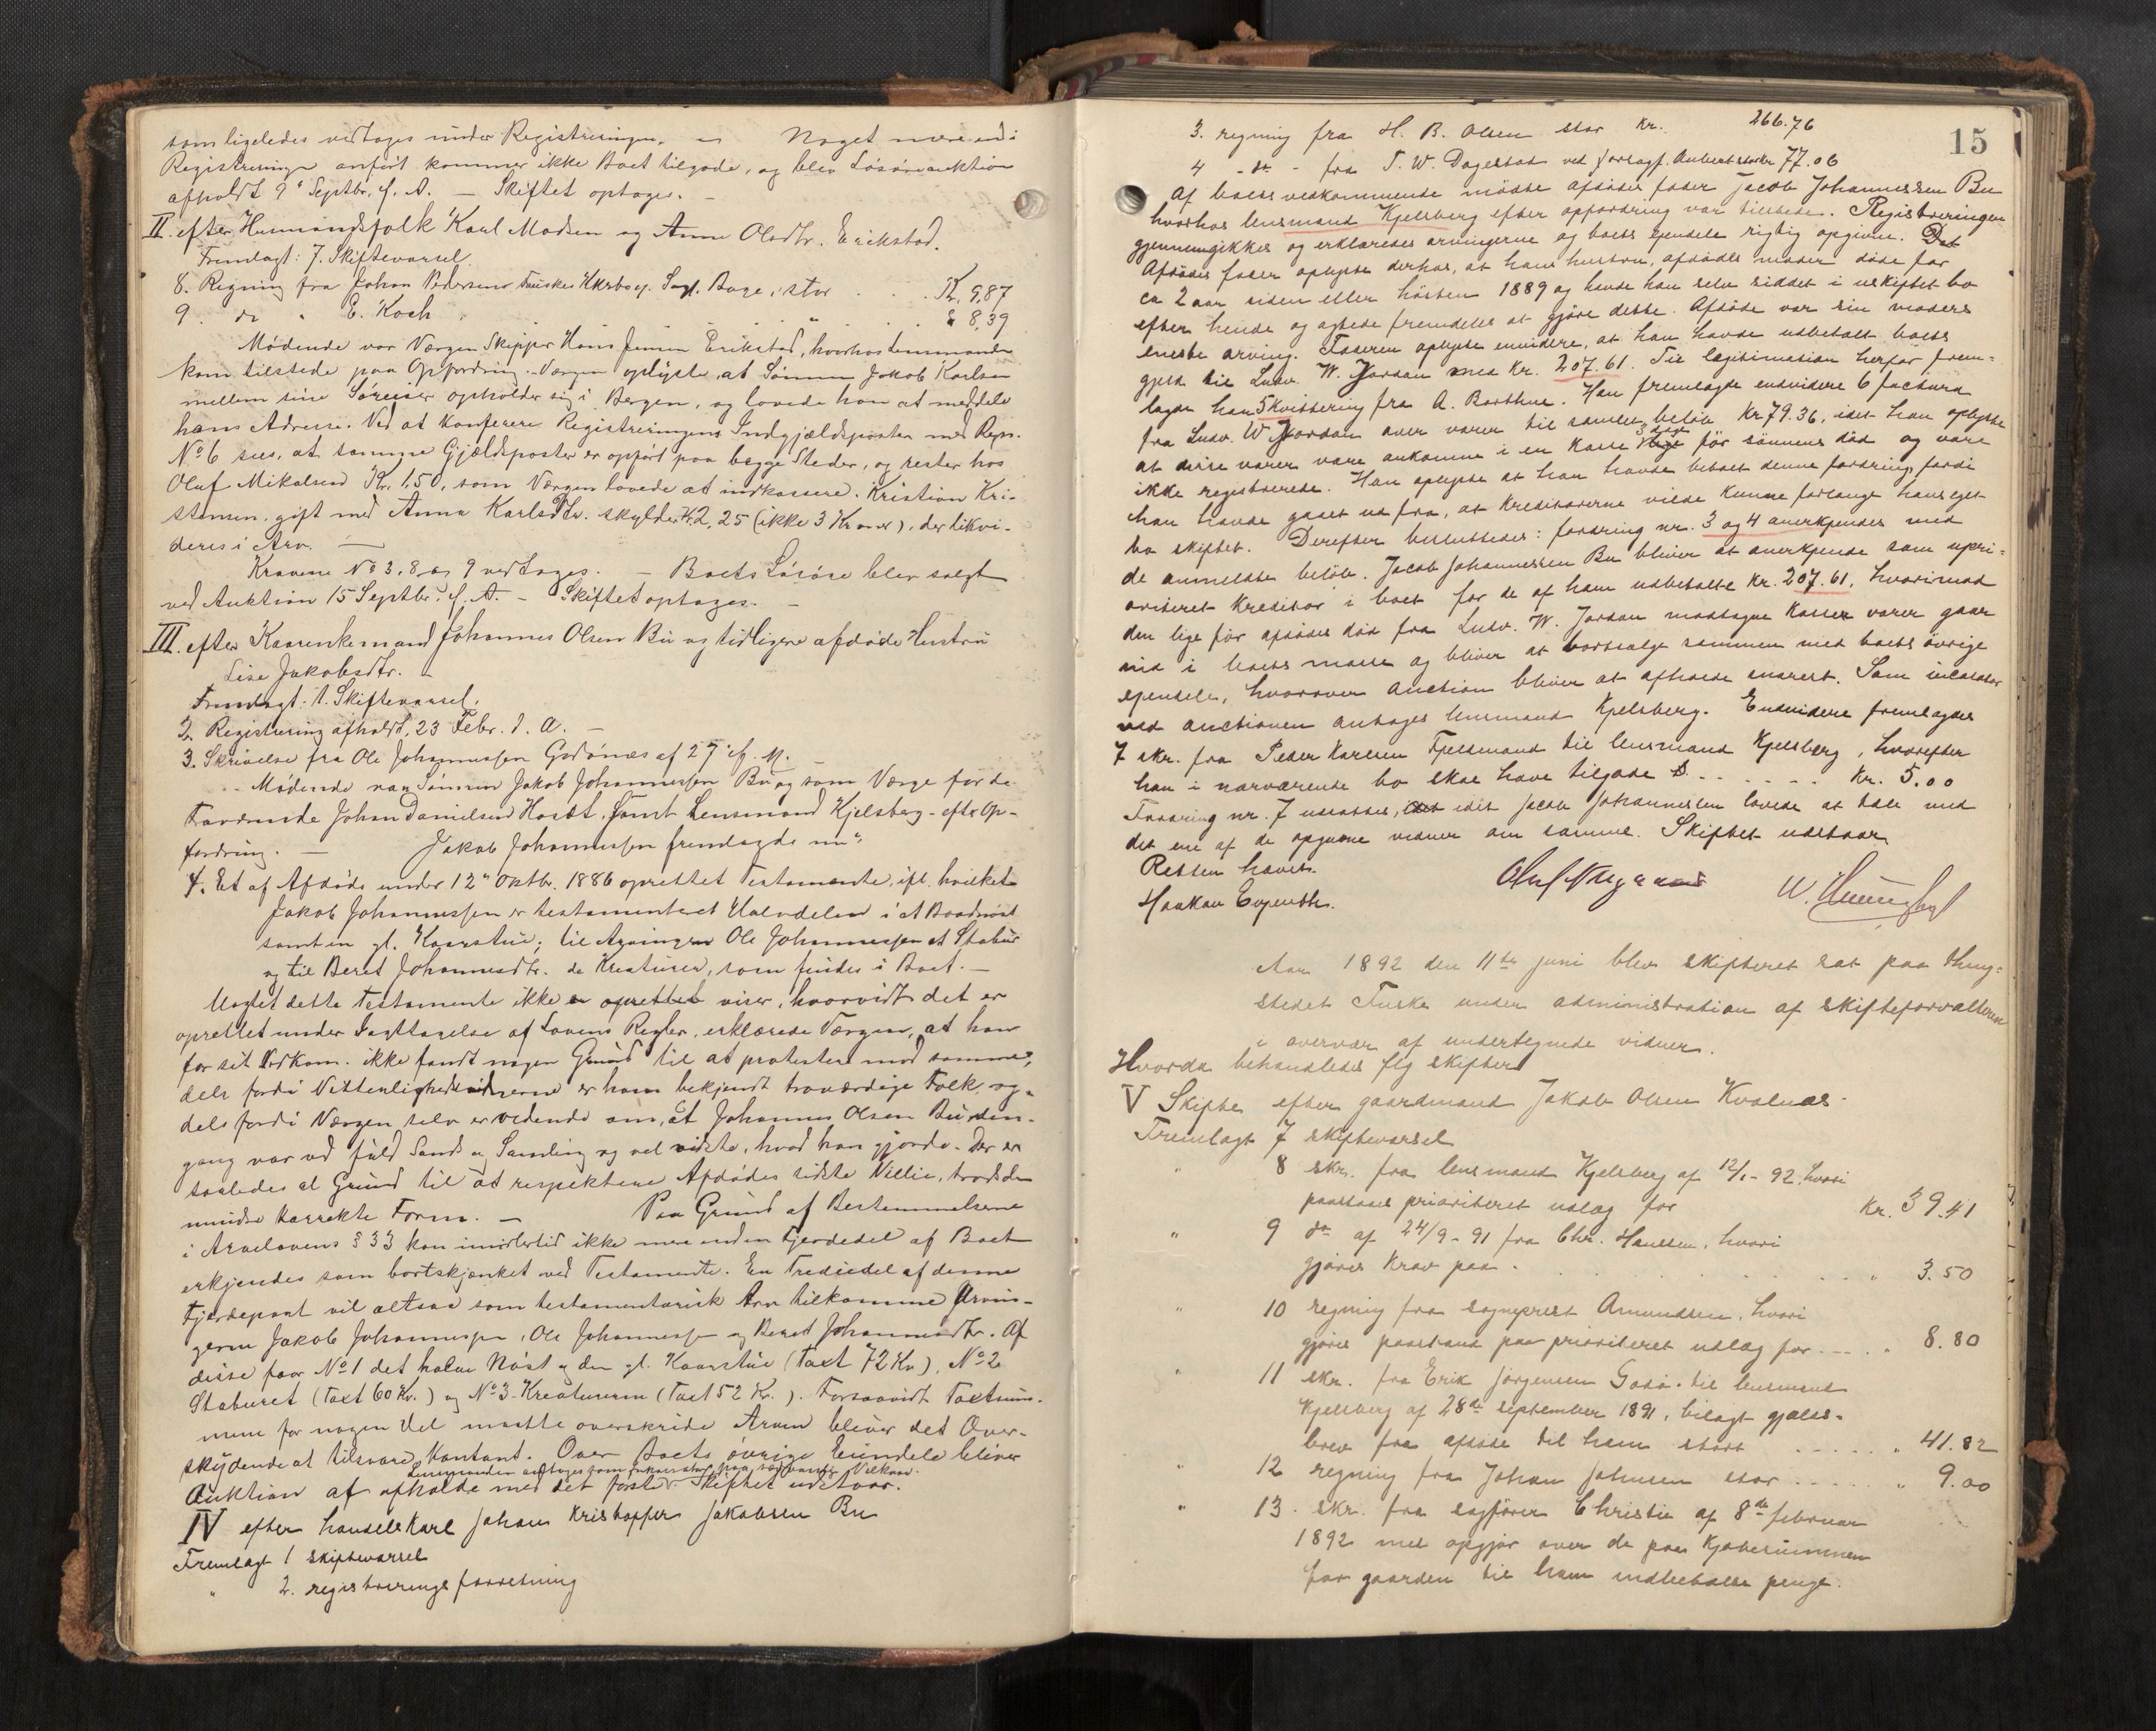 som ligeledes vedtages under Registreringen. — Noget mere end i
Registreringen anført kommer ikke Boet tilgode, og blev Løsøreauktion
afholdt 9' Septbr. f. A. — Skiftet optages. —
II. efter Husmandsfolk Karl Madsen og Anne Olsdtr. Erikstad.
Fremlagt: 7. Skiftevarsel.
8. Regning fra Johan Pedersens Enke stor . . Kr. 9,87
9. do " E. Koch . . . " . . . " 8,39
Mødende var Værgen Skipper Hans Jensen Erikstad, hvorhos Lensmanden
kom tilstede paa Opfordring. Værgen oplyste, at Sønnen Jakob Karlsen
mellem sine Søreiser opholder sig i Bergen, og lovede han at meddele
hans Adresse. Ved at konferere Registreringens Indgjældsposter med Regn.
No 6 sees, at samme Gjældsposter er opført paa begge Steder, og rester hos
Oluf Mikalsen Kr. 1,50, som Værgen lovede at indkassere. Kristian Kri-
stensen gift med Anna Karlsdtr. skylder Kr 2,25 (ikke 3 Kroner), der likvi-
deres i Arv. —
Kravene No 3, 8, og 9 vedtages. — Boets Løsøre blev solgt
ved Auktion 15 Septbr. f. A. — Skiftet optages. —
III. efter Kaarenkemand Johannes Olsen Bu og tidligere afdøde Hustru
Lise Jakobsdtr. —
Fremlagt: 1. Skiftevarsel.
2. Registrering afholdt 23 Febr. d. A. —
3. Skrivelse fra Ole Johannessen Godønæs af 27' s. M.
Mødende var Sønnen Jakob Johannessen Bu og som Værge for de
Fraværende Johan Danielsen Hoset, samt Lensmand Kjelsberg efter Op-
fordring. — Jakob Johannessen fremlagde nu:
4. Et af Afdøde under 12' Oktbr. 1886 oprettet Testamente, ifl. hvilket
Jakob Johannessen er testamenteret Halvdelen i et Baadnøst
samt en gl. Kaarstue; til Arvingen Ole Johannessen et Stabur
og til Beret Johannesdtr. de Kreaturer, som findes i Boet. —
Uagtet dette Testamente ikke er oprettet viser, hvorvidt det er
oprettet under Iagttagelse af Lovens Regler, erklærede Værgen, at han
for sit Vedkom. ikke fandt nogen Grund til at protestere mod samme,
dels fordi Vitterlighedsvidnerne er ham bekjendt troværdige Folk og
dels fordi Værgen selv er vidende om, at Johannes Olsen Bu den-
gang var ved fuld Sands og Samling og vel vidste, hvad han gjorde. Der er
saaledes al Grund til at respektere Afdødes sidste Villie, trods den
mindre korrekte Form. — Paa Grund af Bestemmelserne
i Arvelovens § 33 kan imidlertid ikke mere end en Fjerdedel af Boet
erkjendes som bortskjænket ved Testamente. En Trediedel af denne
Fjerdepart vil altsaa som testamentarisk Arv tilkomme Arvin-
gerne Jakob Johannessen, Ole Johannessen og Beret Johannesdtr. Af
disse faar No 1 det halve Nøst og den gl. Kaarstue (Taxt 72 Kr), No 2
Staburet (Taxt 60 Kr.) og No 3 Kreaturerne (Taxt 52 Kr.). Forsaavidt Taxtsum-
mene for nogen Del maatte overskride Arven bliver det Over-
skydende at tilsvare kontant. Over Boets øvrige Eiendele bliver
Lensmanden antages som Inkassator paa sædvanlige Vilkaar.
Auktion at afholde med det første. Skiftet udstaar.
IV efter handelskarl Johan Kristoffer Jakobsen Bu
Fremlagt 1 skiftevarsel
" 2. registreringsforretning
15
3. regning fra H. B. Olsen stor kr. 266.76
4 do - fra T. W. Dagestad ved forlagf. Aubert stor kr 77.06
Af boets vedkommende mødte afdødes fader Jacob Johannessen Bu
hvorhos lensmand Kjelsberg efter opfordring var tilstede. Registreringen
gjennemgikkes og erklæredes arvingerne og boets eiendele rigtig opgivne. Det
Afdødes fader oplyste derhos, at hans hustru, afdødes moder døde for
ca 2 aar siden eller høsten 1889 og havde han selv siddet i uskiftet bo
efter hende og agtede fremdeles at gjøre dette. Afdøde var sin moders
eneste arving. Faderen oplyste endvidere, at han havde udbetalt boets
gjeld til Ludv. W. Jordan med kr. 207.61. Til legitimation herfor frem-
lagde han 5 kvittering fra A. Barthue. Han fremlagde endvidere 6 factura
fra Ludv. W Jordan over varer til samlet beløb kr 79.36, idet han oplyste
at disse varer vare ankomne i en kasse 3 dage før sønnens død og vare
ikke registrerede. Han oplyste at han havde betalt denne fordring, fordi
han havde gaaet ud fra, at kreditorerne vilde kunne forlange hans eget
bo skiftet. Derefter besluttedes: fordring nr. 3 og 4 anerkjendes med
de anmeldte beløb. Jacob Johannessen Bu bliver at anerkjende som upri-
oriteret kreditor i boet for de af ham udbetalte kr. 207.61, hvorimod
den lige før afdødes død fra Ludv. W. Jordan modtagne kasse varer gaar
ind i boets masse og bliver at bortsælge sammen med boets øvrige
eiendele, hvorover auction bliver at afholde snarest. Som incassator
ved auctionen antages lensmand Kjelsberg. Endvidere fremlagdes
7 skr. fra Peder Karlsen Fjeldmand til lensmand Kjelsberg, hvorefter
han i nærværende bo skal have tilgode . . . . . . kr. 5.00
Fordring nr. 7 udsattes, idet Jacob Johannessen lovede at tale med
det ene af de opgivne vidner om samme. Skiftet udstaar
Retten hævet.
Haakon Evjenth.
Aar 1892 den 11te juni blev skifteret sat paa thing-
stedet Fuske under administration af skifteforvalteren
i overvær af undertegnede vidner.
Hvorda behandledes flg skifter
V Skifte efter gaardmand Jakob Olsen Kvalnes.
Fremlagt 7 skiftevarsel
" 8 skr. fra lensmand Kjelsberg af 12/1 - 92. hvori
paastaaes prioriteret udlæg for kr. 39.41
" 9 do af 24/9 - 91 fra Chr. Hanssen, hvori
gjøres krav paa . . . . . . . " 3.50
" 10 regning fra sogneprest Amundsen, hvori
gjøres paastand paa prioriteret udlæg for . . . . 8.80
" 11 skr. fra Erik Jørgensen Godø til lensmand
Kjelsberg af 28de september 1891, bilagt gjelds-
brev fra afdøde til ham stort . . . . . " 41.82
" 12 regning fra Johan Johnsen stor . . . . . " 9.00
" 13. skr. fra sagfører Christie af 8de februar
1892 med opgjør over de paa kjøbesummen
for gaarden til ham indbetalte penge.